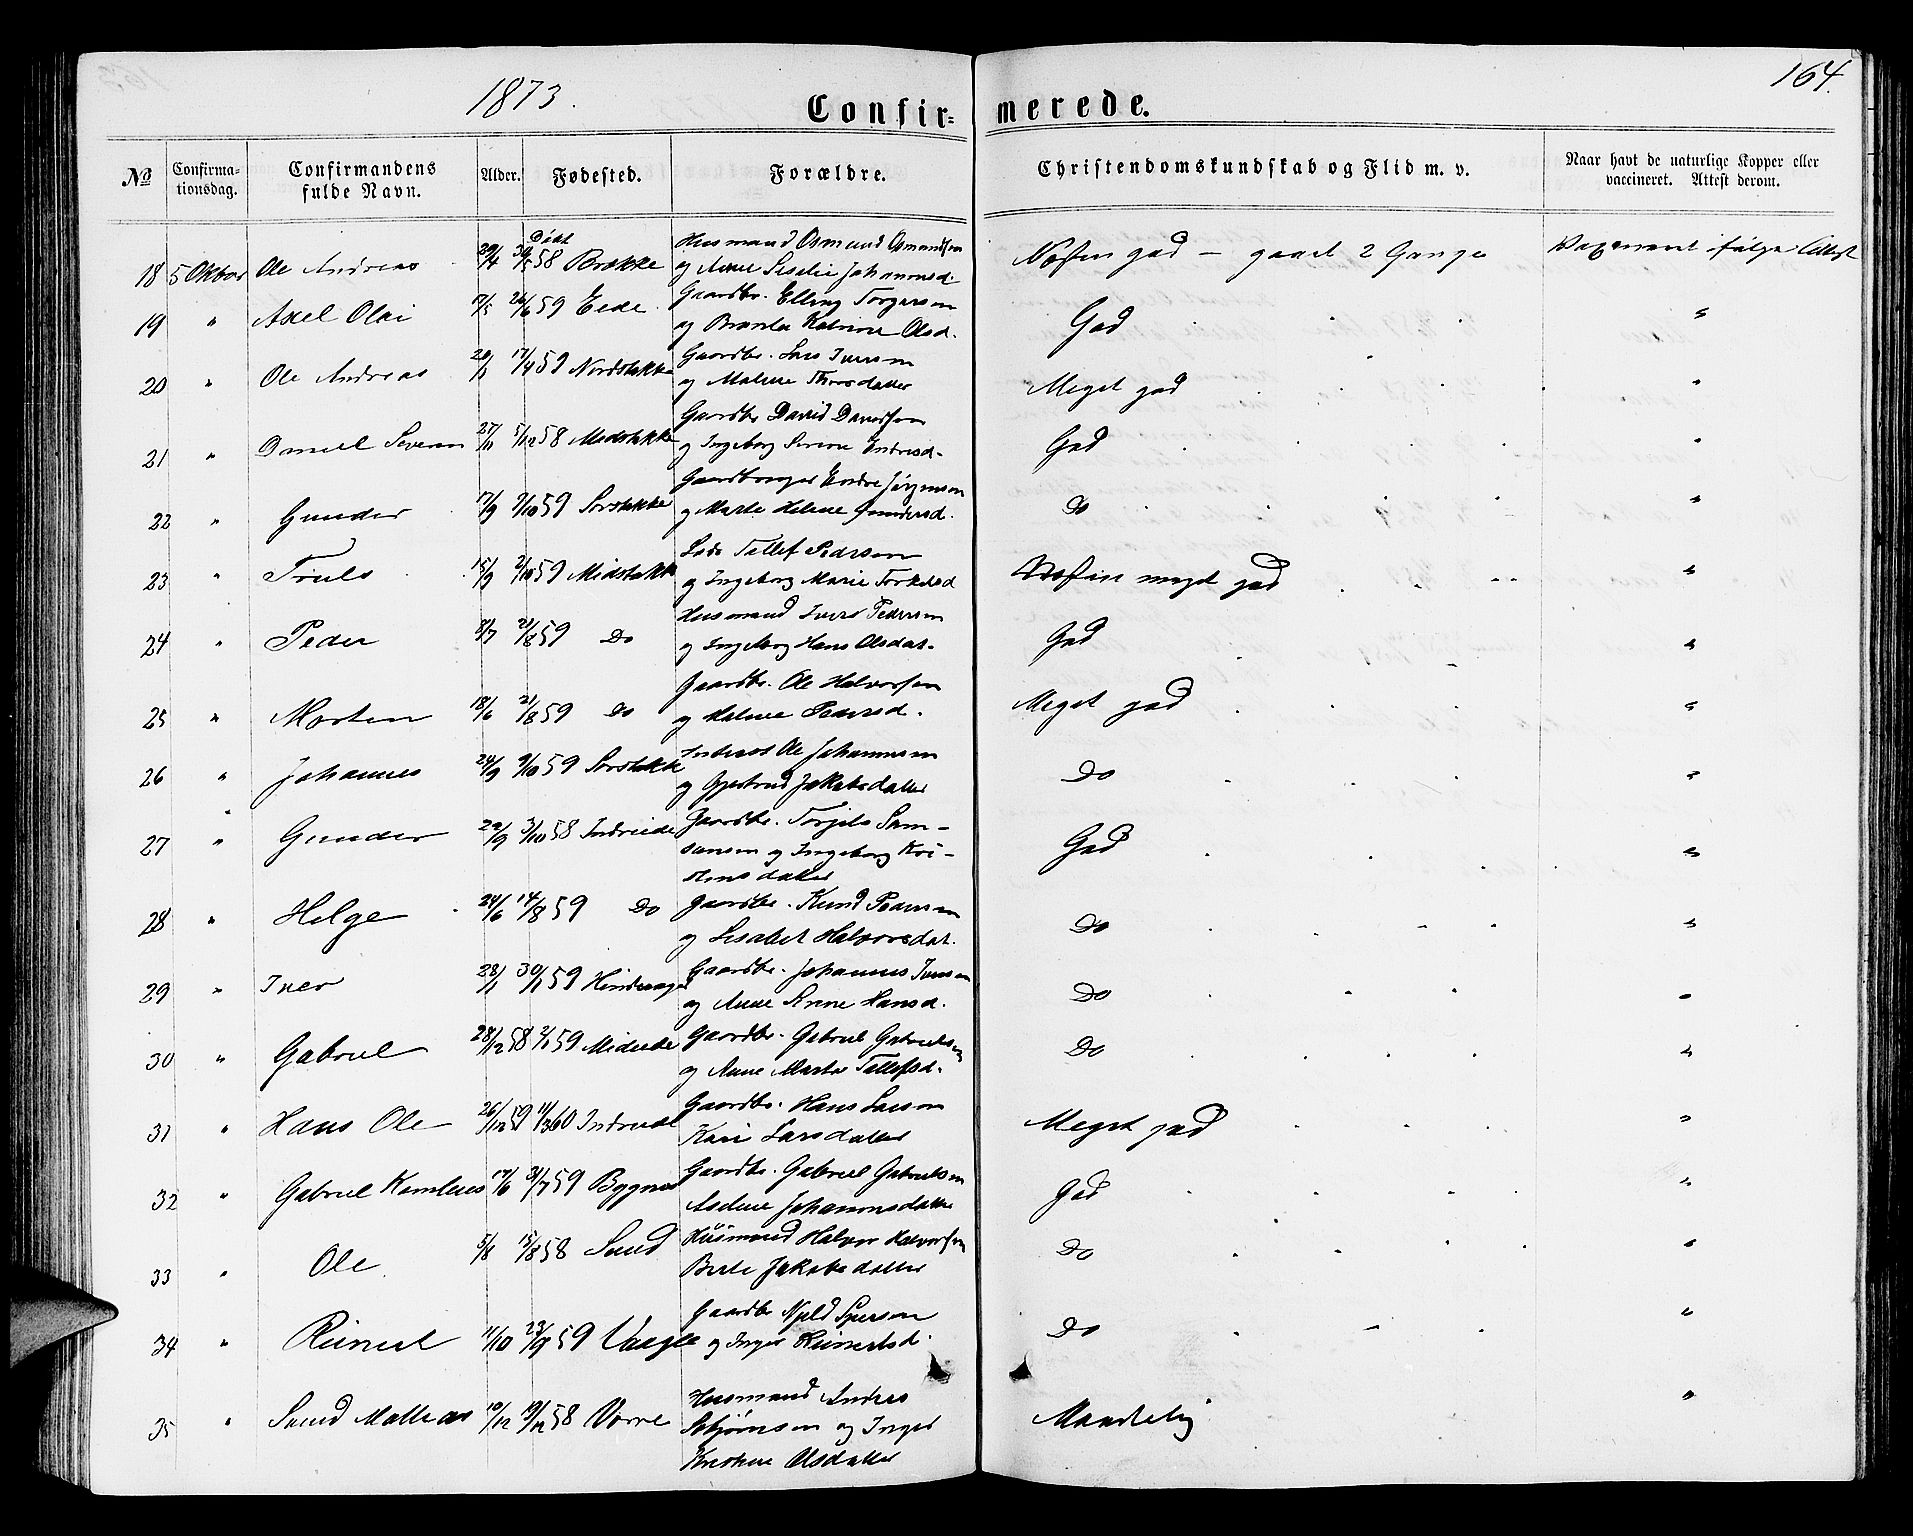 1873.
164.
Confir- merede.
No
Confirma-
tionsdag.
Confirmandens
fulde Navn.
Alder.
Fødested.
Forældre.
Christendomskundskab og Flid m. v.
Naar havt de naturlige Kopper eller
vaccineret. Attest derom.
Døbt
Husmand Osmund Osmundsen
18 5 Oktober Ole Andreas 29/4 30/5 58 Brekke og Anne Johannesd. Næsten god - gaaet 2 Gange ifølge Attest
Gaardbr. Elling Torgersen
19 " Axel Olai 26/6 59 Eede og Katrine Olsd. God "
Gaardbr. Lars Iversen
20 " Ole Andreas 17/4 59 og Malene Thorsdatter Meget god "
Gaardbr David Davidsen
21 " Daniel Severin 27/11 5/12 58 Midstokke og Ingeborg Serine Endresd. God "
Gaardbruger Endre Jørgensen
22 " Gunder 17/9 9/10 59 og Marte Helene Gundersd. Do "
Tallef Pedersen
23 " Truls 15/9 2/10 59 og Ingeborg Marie Næsten meget god "
Husmand Iver Pedersen
24 " Peder 8/7 21/8 59 Do og Ingeborg Hans Olsdat. God "
Gaardbr. Ole Halvorsen
25 " Morten 18/6 21/8 59 Do og Malene Pedersd. Meget god "
Ole Johannesen
26 " Johannes 24/9 9/10 59 og Gjertrud Jakobsdatter Do "
Gaardbr. Torjels Sam-
27 " Gunder 22/9 3/10 58 Indreeide sonsen og Ingeborg Kri- God "
stensdatter
Gaardbr. Knud Pedersen
28 " Helge 24/6 14/8 59 Do og Lisabet Halvorsdat. Do "
Gaardbr. Johannes Iversen
29 " Iver 28/1 30/1 59 og Anne Serine Hansd. Do "
Gaardbr. Gabriel Gabrielsen
30 " Gabriel 28/12 58 2/1 59 og Anne Marte Tallefsd. Do "
Gaardbr. Hans Larsen
31 " Hans Ole 26/12 59 11/3 60 Kari Larsdatter Meget god "
Gaardbr. Gabriel Gabrielsen
32 " Gabriel Kornelius 17/6 31/7 59 Johannesdatter God "
Husmand Halvor Halvorsen
33 " Ole 5/8 15/8 58 Sund Berte Jakobsdatter Do "
Gaardbr
34 " Reinert 11/10 23/9 59 Vaage og Inger Reinertsd. Do "
Husmand Andreas
35 " Svend Mathias 10/12 19/12 58 Vorre og Inger Maadelig "
Kristine Olsdatter